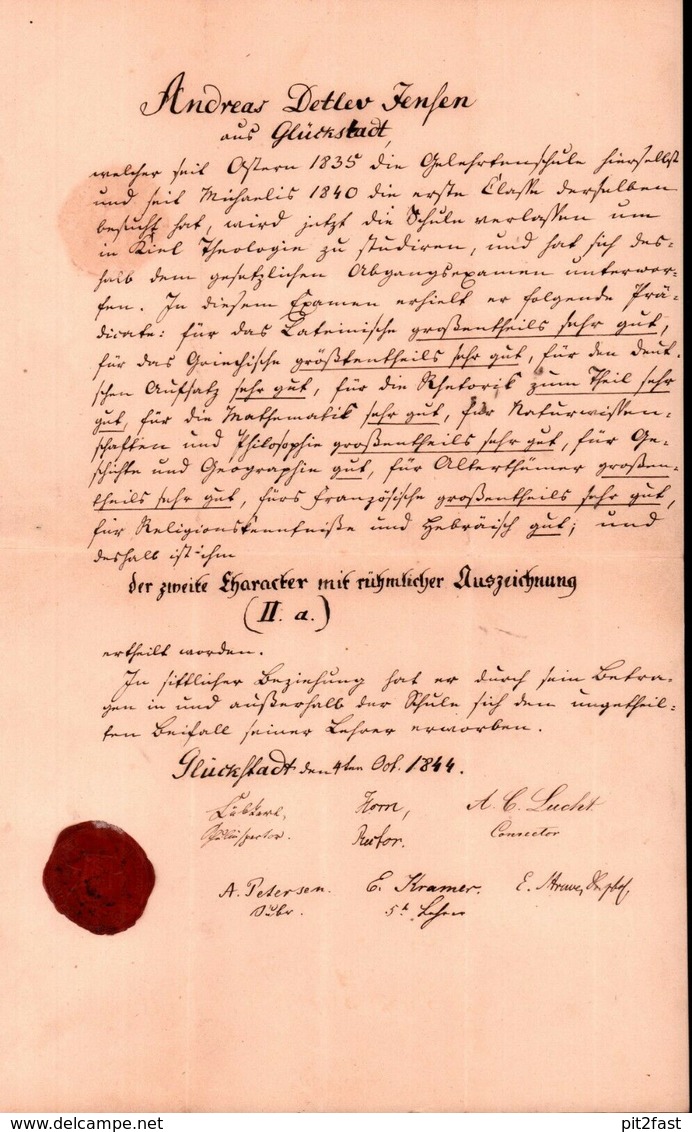 Andreas Detlev Jensen
aus Glückstadt,
welcher seit Ostern 1835 die Gelehrtenschule hierselbst
und seit Michaelis 1840 die erste Classe derselben
besucht hat, wird jetzt die Schule verlassen um
in Kiel Theologie zu studiren, und hat sich des-
halb dem gesetzlichen Abgangsexamen unterwor-
fen. In diesem Examen erhielt er folgende Prä-
dicate: für das Lateinische großentheils sehr gut,
für das Griechische größtentheils sehr gut, für den deut-
schen Aufsatz sehr gut, für die Rhetorik zum Theil sehr
gut, für die Mathematik sehr gut, für Naturwissen-
schaften und Philosophie großentheils sehr gut, für Ge-
schichte und Geographie gut, für Alterthümer großen-
theils sehr gut, fürs Französische großentheils sehr gut,
für Religionskenntniße und Hebräisch gut; und
deshalb ist ihm
der zweite Character mit rühmlicher Auszeichnung
(II. a.)
ertheilt worden.
In sittlicher Beziehung hat er durch sein Betra-
gen in und außerhalb der Schule sich den ungetheil-
ten Beifall seiner Lehrer erworben.
Glückstadt den 4ten Oct. 1844.
Lübkert, Horn, A. C. Lucht
Schulinspector. Rector. Conrector
A. Petersen. E. Kramer. E. Struve,
Subr. 5r Lehrer
pit2fast